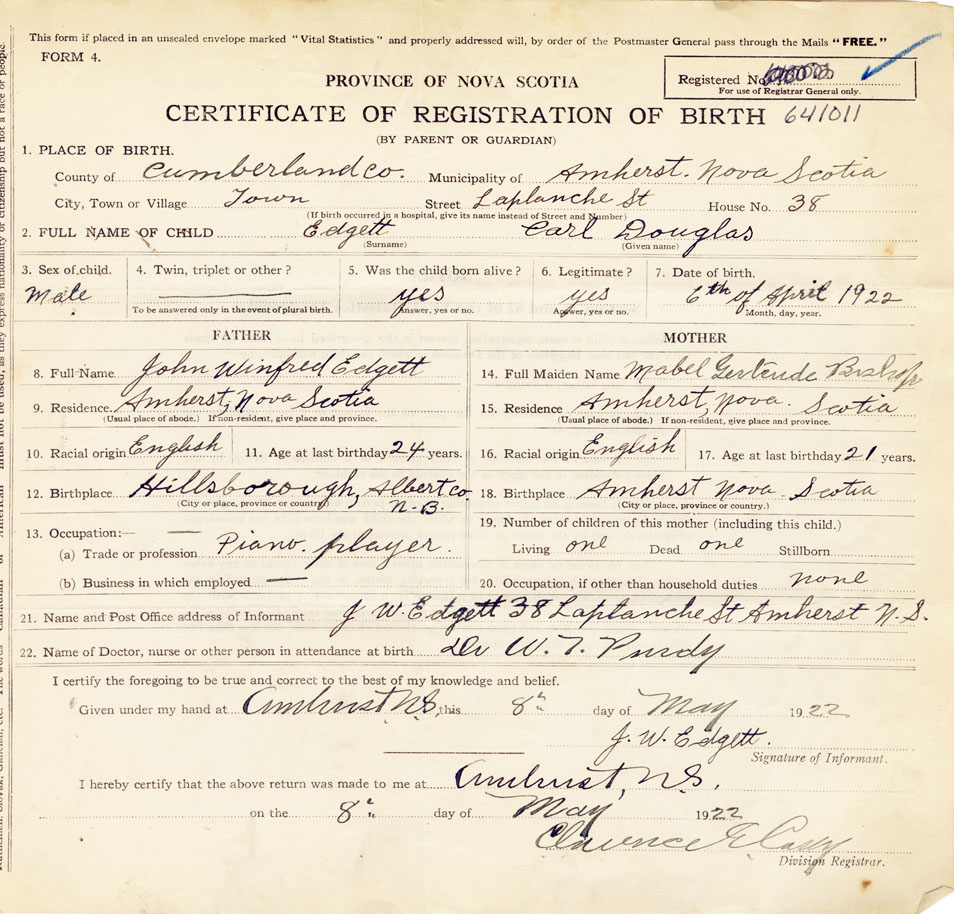 This form if placed in an unsealed envelope marked "Vital Statistics" and properly addressed will, by order of the Postmaster General pass through the Mails "FREE."
FORM 4.
Registered No.
For use of Registrar General only.
PROVINCE OF NOVA SCOTIA
CERTIFICATE OF REGISTRATION OF BIRTH 641011
(BY PARENT OR GUARDIAN)
1. PLACE OF BIRTH.
County of Cumberland Co. Municipality of Amherst. Nova Scotia
City, Town or Village Town Street Laplanche St House No. 38
(If birth occurred in a hospital, give its name instead of Street and Number)
2. FULL NAME OF CHILD Edgett Carl Douglas
(Surname) (Given name)
3. Sex of child. 4. Twin, triplet or other? 5. Was the child born alive? 6. Legitimate? 7. Date of birth.
Male yes yes 6th of April 1922
To be answered only in the event of plural birth. Answer, yes or no. Answer, yes or no. Month, day, year.
FATHER MOTHER
8. Full Name John Winfred Edgett 14. Full Maiden Name Mabel Gertrude Bishop
9. Residence. Amherst, Nova Scotia 15. Residence Amherst, Nova Scotia
(Usual place of abode.) If non-resident, give place and province. (Usual place of abode.) If non-resident, give place and province.
10. Racial origin English 11. Age at last birthday 24 years. 16. Racial origin English 17. Age at last birthday 21 years.
12. Birthplace Hillsborough, Albert co. N.B. 18. Birthplace Amherst Nova Scotia
(City or place, province or country) (City or place, province or country.)
13. Occupation:— 19. Number of children of this mother (including this child.)
(a) Trade or profession Piano player. Living one Dead one Stillborn
(b) Business in which employed — 20. Occupation, if other than household duties none
21. Name and Post Office address of Informant J W. Edgett 38 Laplanche St Amherst N.S.
22. Name of Doctor, nurse or other person in attendance at birth. Dr W. T. Purdy
I certify the foregoing to be true and correct to the best of my knowledge and belief.
Given under my hand at Amherst N.S. this 8th day of May 1922
J. W. Edgett.
Signature of Informant.
I hereby certify that the above return was made to me at Amherst, N.S.
on the 8th day of May 1922
Clarence E Casey
Division Registrar.